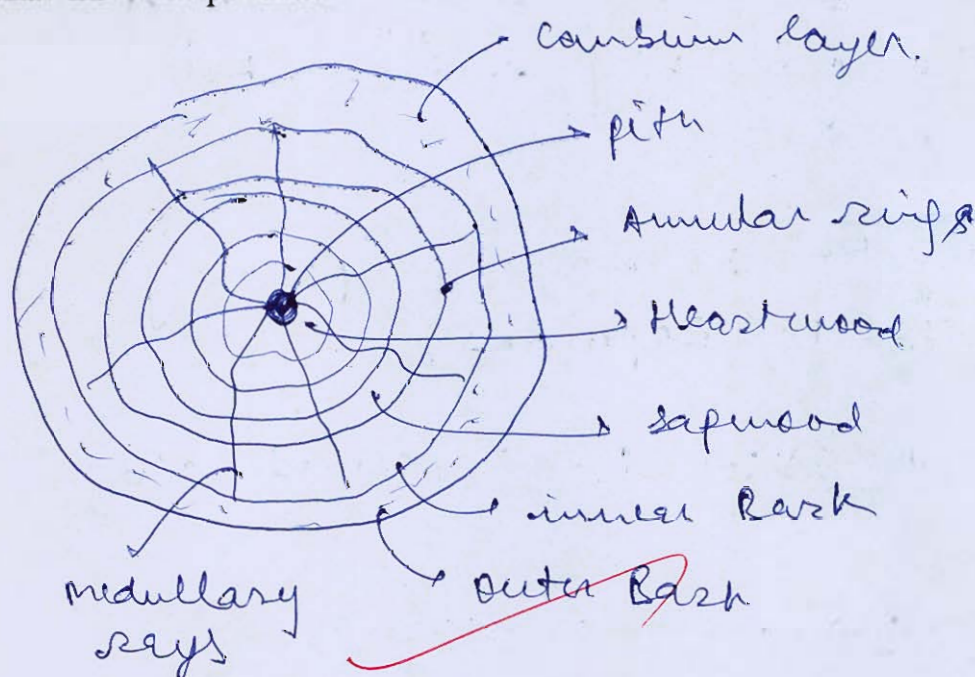 Cambium layer.
pith
Annular rings
Heartwood
sapwood
inner Bark
outer Bark
medullary
rays